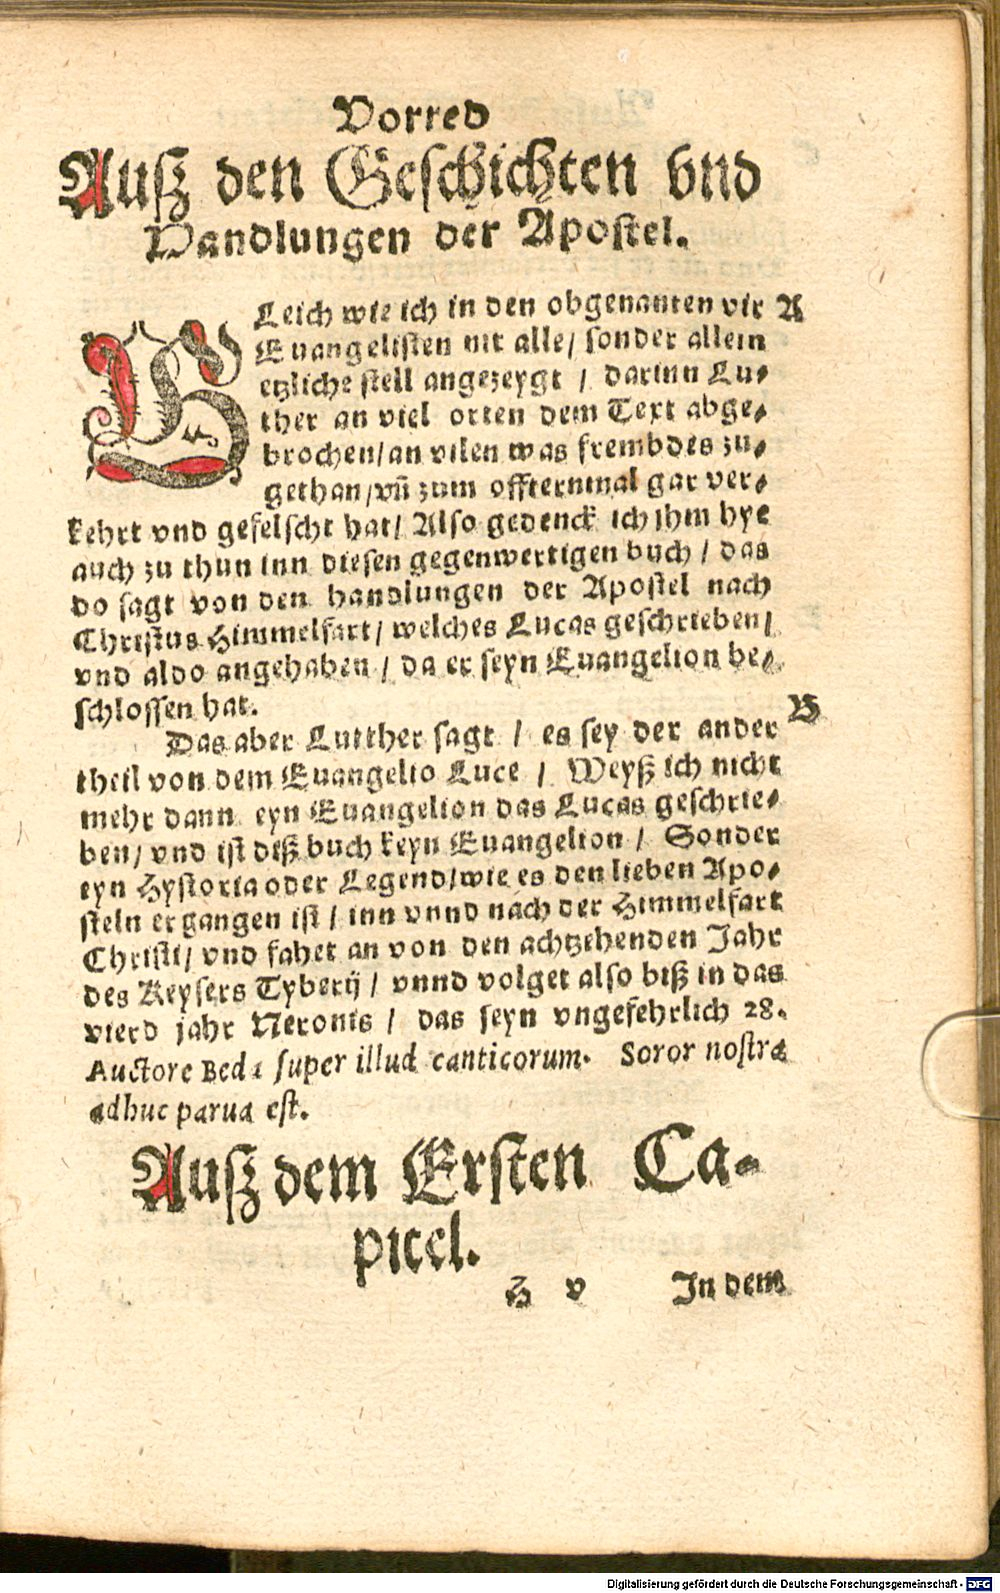 Vorred
Auß den Geschichten vnd
Handlungen der Apostel.
GLeich wie ich in den obgenanten vir A
Euangelisten nit alle/ sonder allein
etzliche stell angezeygt / darinn Lu-
ther an viel orten dem Text abge-
brochen/an vilen was frembdes zu-
gethan/vñ zum offternmal gar ver-
kehrt vnd gefelscht hat/ Also gedenck ich jhm hye
auch zu thun inn diesen gegenwertigen buch / das
do sagt von den handlungen der Apostel nach
Christus Himmelfart/ welches Lucas geschrieben/
vnd aldo angehaben / da er seyn Euangelion be-
schlossen hat.
Das aber Lutther sagt / es sey der ander B
theil von dem Euangelio Luce / Weyß ich nicht
mehr dann eyn Euangelion das Lucas geschrie-
ben/ vnd ist diß buch keyn Euangelion / Sonder
eyn Hystoria oder Legend/wie es den lieben Apo-
steln ergangen ist / inn vnnd nach der Himmelfart
Christi/ vnd fahet an von den achtzehenden Jahr
des Keysers Tyberij / vnnd volget also biß in das
vierd jahr Neronis / das seyn vngefehrlich 28.
Auctore Beda super illud canticorum. Soror nostra
adhuc parua est.
Auß dem Ersten Ca-
pitel.
H v In dem
Digitalisierung gefördert durch die Deutsche Forschungsgemeinschaft - DFG